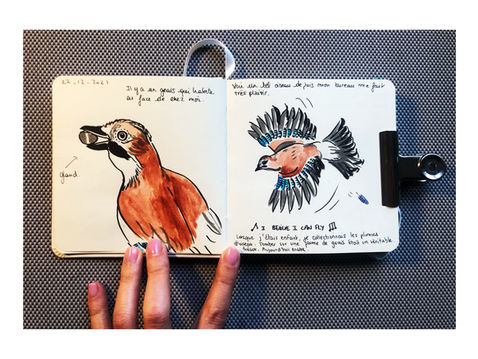 27.12.2021
Il y a un geais qui habite
en face de chez moi.
gland.
Voir un bel oiseau depuis mon bureau me fait
très plaisir.
I BELIEVE I CAN FLY
Lorsque j'étais enfant, je collectionnais les plumes
d'oiseau. Tomber sur une plume de geais était un véritable
trésor. Aujourd'hui encore.